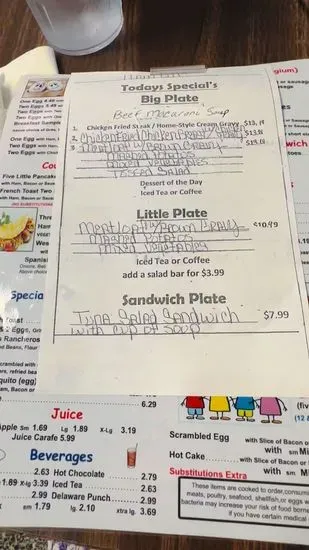 Todays Special's
Big Plate
Beef Macaroni Soup
1. Chicken Fried Steak / Home-Style Cream Gravy $13.19
2. Chicken Fried Chicken
3. Meatloaf w/ Brown Gravy $13.19
Mashed Potatoes
Mixed Vegetables
Tossed Salad
Dessert of the Day
Iced Tea or Coffee
Little Plate
Meatloaf w/ Brown Gravy $10.99
Mashed Potatoes
Mixed Vegetables
Iced Tea or Coffee
add a salad bar for $3.99
Sandwich Plate
Tuna Salad Sandwich $7.99
with cup of soup
One Egg 4.49
Two Eggs 5.49
Two Eggs
Two Eggs with
Breakfast Sampl
One Egg with
Two Eggs with
Two Eggs with
Five Little Pancak
with Ham, Bacon or
French Toast Two
with Ham, Bacon or
(NO SUBSTITUTIONS
Thre
Ham
Wes
Spanis
Specia
Toast
& 2 Eggs,
Rancheros
ed Beans, Flour
crambled with
rs, refried bea
quito (egg)
am, Bacon or
6.29
Juice
Apple Sm 1.69 Lg 1.89 X-Lg 3.19
Juice Carafe 5.99
Beverages
2.63 Hot Chocolate 2.79
1.89 X-lg 3.39 Iced Tea 2.63
2.99 Delaware Punch 2.99
sm 1.79 lg. 2.10 xtra lg. 3.69
Scrambled Egg with Slice of Bacon o
with sm Mi
Hot Cake with Slice of Bacon or
with sm Mi
Substitutions Extra
These items are cooked to order, consum
meats, poultry, seafood, shellfish, or eggs
bacteria may increase your risk of food borne
if you have certain medical